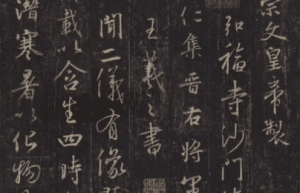 宗文皇帝製
弘福寺沙門
仁集晉右將軍
王羲之書
聞二儀有像
載以含生四時
潛寒暑以化物